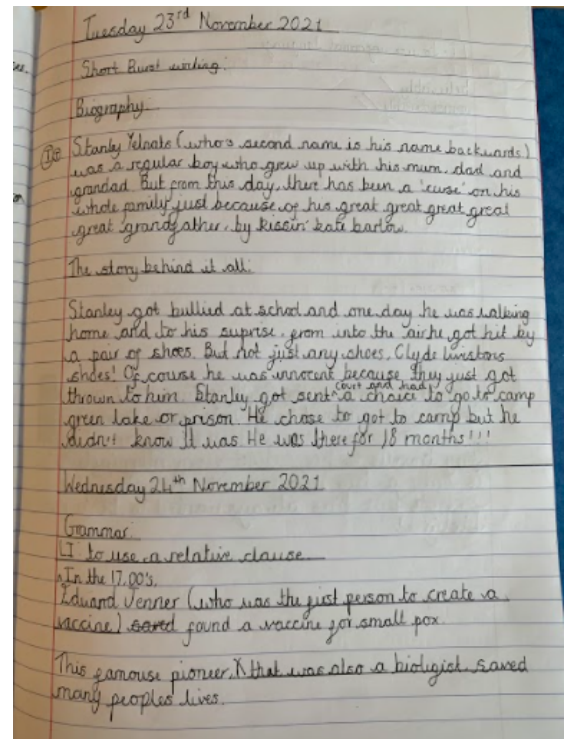 Tuesday 23rd November 2021
Short Burst writing:
Biography:
Stanly Yelnats (who's second name is his name backwards)
was a regular boy who grew up with his mum, dad and
grandad. But from this day, there has been a 'curse' on his
whole family just because of his great great great great
great grandfather, by kissin' kate barlow.
The story behind it all:
Stanley got bullied at school and one day he was walking
home and to his suprise, from into the air he got hit by
a pair of shoes. But not just any shoes, Clyde livistons
shoes! Of course he was innocent because they just got
thrown to him. Stanley got sent court and had a choice to go to camp
green lake or prison. He chose to got to camp but he
didn't know it was. He was there for 18 months!!!
Wednesday 24th November 2021
Grammar:
LI to use a relative clause.
In the 17,00's,
Edward Jenner (who was the first person to create a
vaccine) saved found a vaccine for small pox.
This famouse pioneer, that was also a bioligist, saved
many peoples lives.